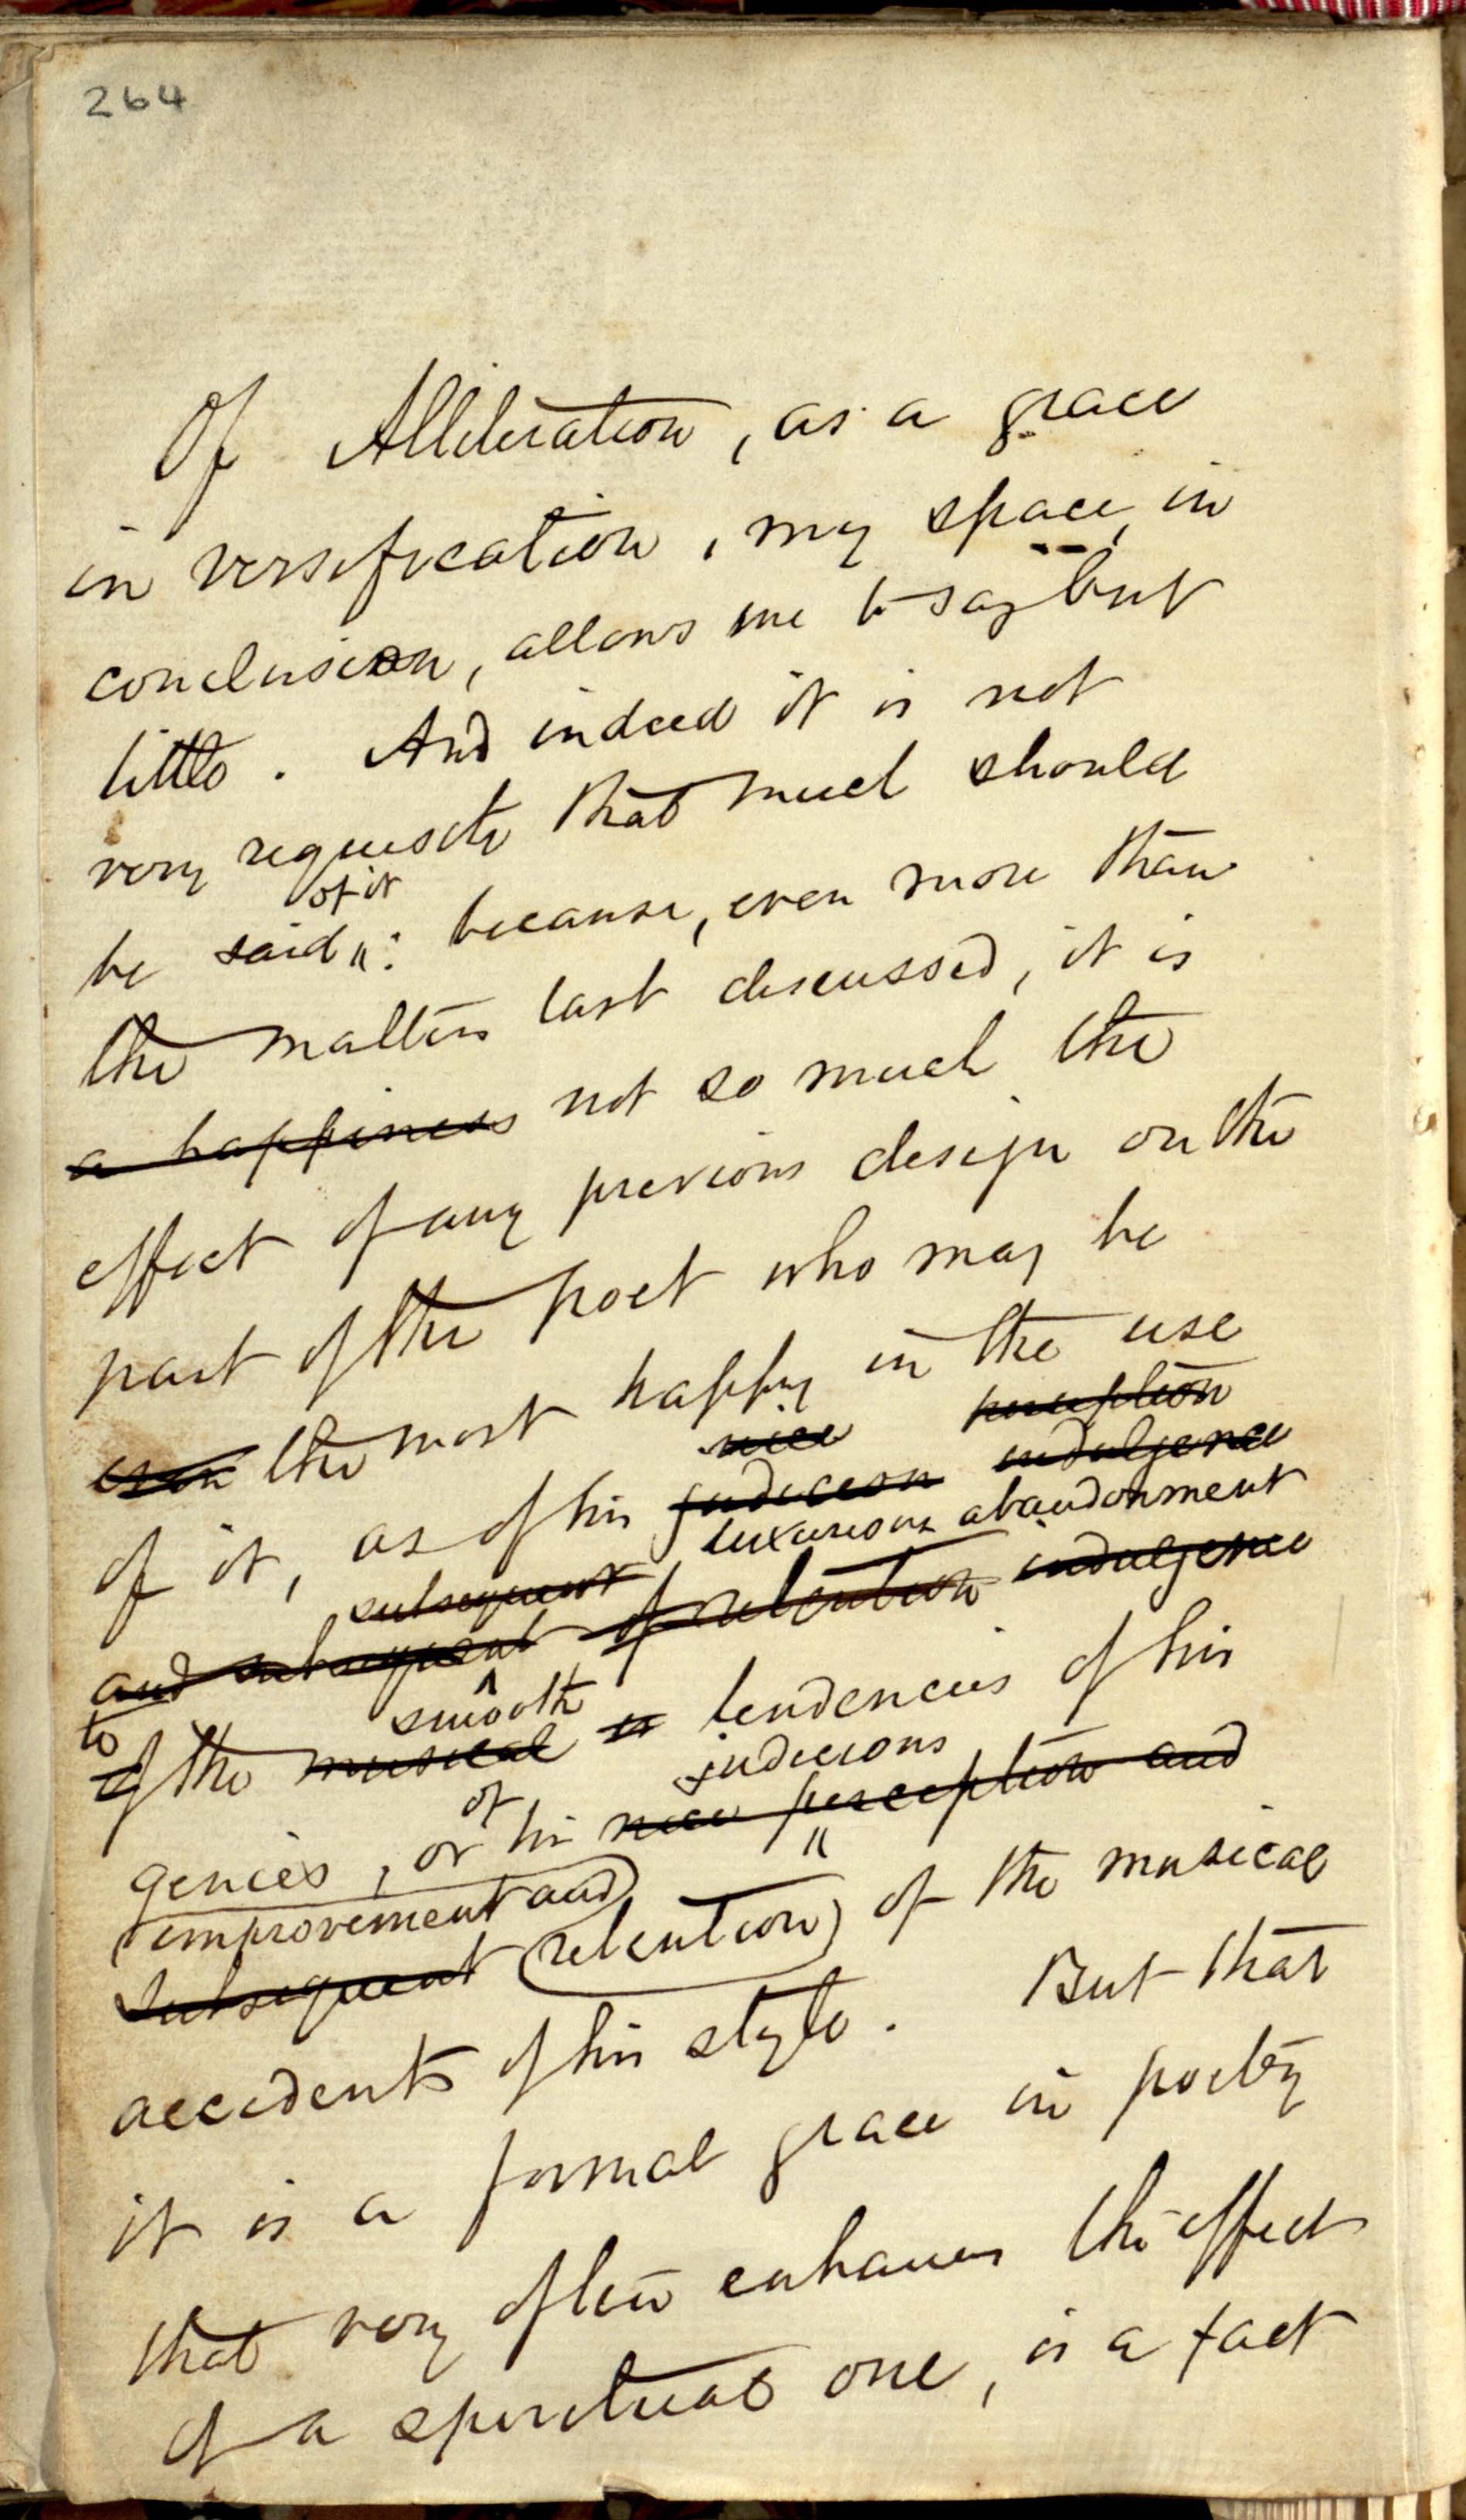 264
Of Alliteration, as a grace
in versification, my space, in
conclusion, allows me to say but
little. And indeed it is not
very requisite that much should
of it
be said : because, even more than
the matters last discussed, it is
a happiness not so much the
effect of any previous design on the
part of the poet who may be
even the most happy in the use
nice perception
of it, as of his judicious indulgence
luxurious abandonment
subsequent
and subsequent of retention indulgence
to smooth
of the musical tendencies of his
of judicious
genius, or his nice perception and
improvement and
subsequent retention of the musical
accidents of his style. But that
it is a formal grace in poetry
that very often enhances the effect
of a spiritual one, is a fact